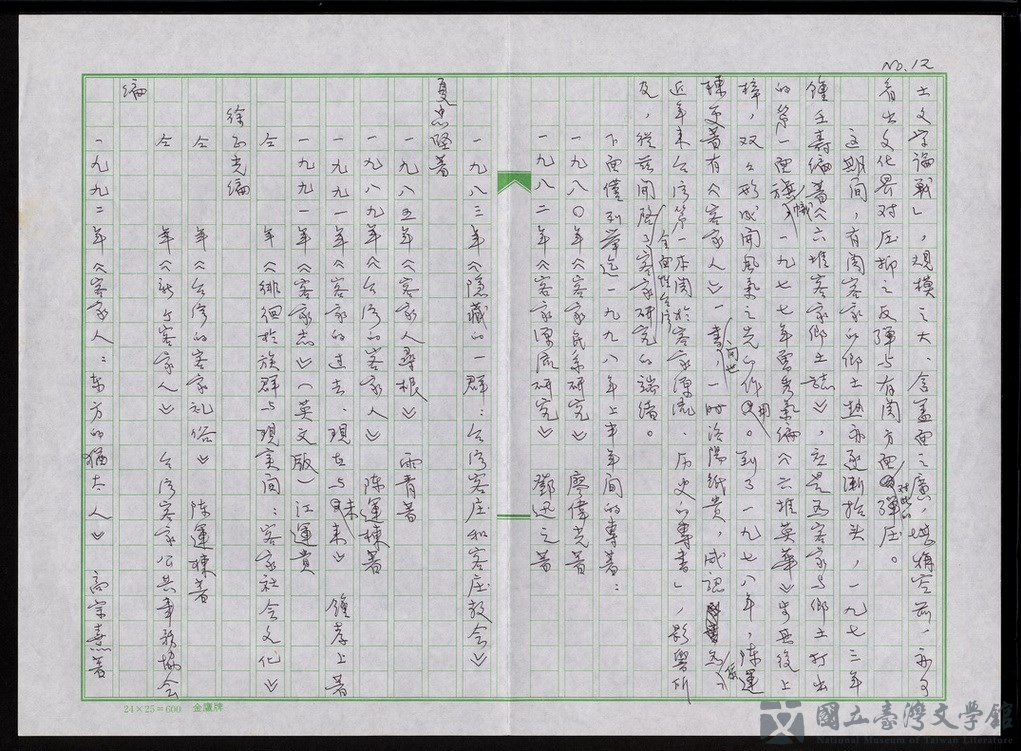 No.12
土文学論戰」，規模之大、含蓋面之廣，堪稱空前，亦可
看出文化界对压抑之反彈与有関方面对此的彈压。
这期间，有関客家的鄉土热亦逐漸抬头，一九七三年
鍾壬壽編著《六堆客家鄉土誌》，立足為客家与鄉土打出
的第一面旗幟，一九七七年曾秀氣編《六堆英華》步其後上
梓，双々形成開風氣之先的作用。到了一九七八年，陳運
棟予著有《客家人》一書问世，一時洛陽紙貴，咸認為係
近年來台湾第一本関於客家源流、历史的專書」，影响所
及，從茲開啓了全面性台湾客家研究的端緒。
下面僅列举迄一九九八年上半年间的專著：
一九八〇年《客家民系研究》　廖偉光著
一九八二年《客家源流研究》　鄧迅之著
一九八三年《隱藏的一群：台湾客庄和客庄教会》
夏忠堅著
一九八五年《客家人尋根》　雨青著
一九八九年《台湾的客家人》　陳運棟著
一九九一年《客家的过去、現在与未來》　鍾孝上著
一九九一年《客家志》（英文版）　江運貴
仝　年《徘徊於族群与現实间：客家社会文化》
徐正光編
仝　年《台湾的客家礼俗》　陳運棟著
仝　年《新个客家人》　台湾客家公共事務協会
編
一九九二年《客家人：东方的猶太人》　高宗熹著
24×25=600　金鷹牌
國立臺灣文學館
National Museum of Taiwan Literature